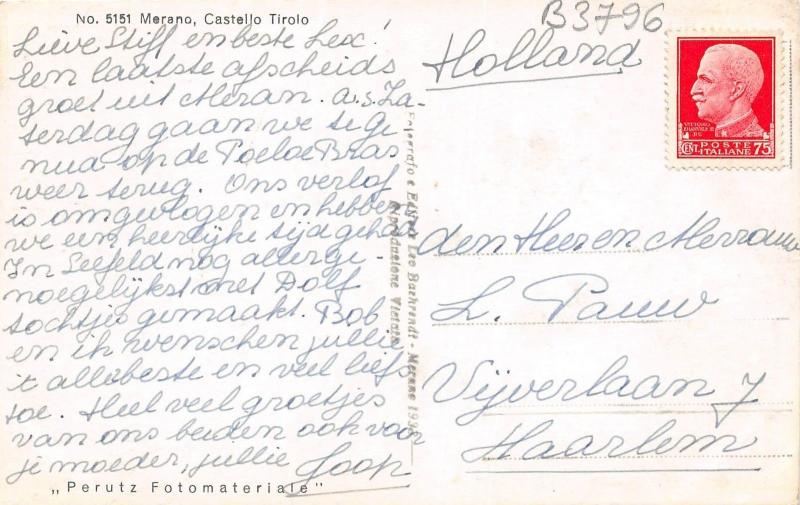 No. 5151 Merano, Castello Tirolo
B3796
Lieve Stiff en beste Lex!
Een laatste afscheids
groet uit Meran. a.s. Za-
terdag gaan we te ge
nua op de Poeloe Bras
weer terug. Ons verlof
is omgevlogen en hebben
we een heerlijke tijd gehad
In Seefeld nog allerge-
noegelijkst met Dolf
tochtjes gemaakt. Bob
en ik wenschen jullie
't allerbeste en veel liefs
toe. Heel veel groetjes
van ons beiden ook voor
je moeder, jullie Joop
„Perutz Fotomateriale"
Fotografo e Editore Leo Baehrendt - Merano
Riproduzione Vietata
Holland
VITTORIO
EMANUELE III
RE
POSTE
CENT. ITALIANE 75
den Heer en Mevrouw
L. Pauw
Vijverlaan 7
Haarlem